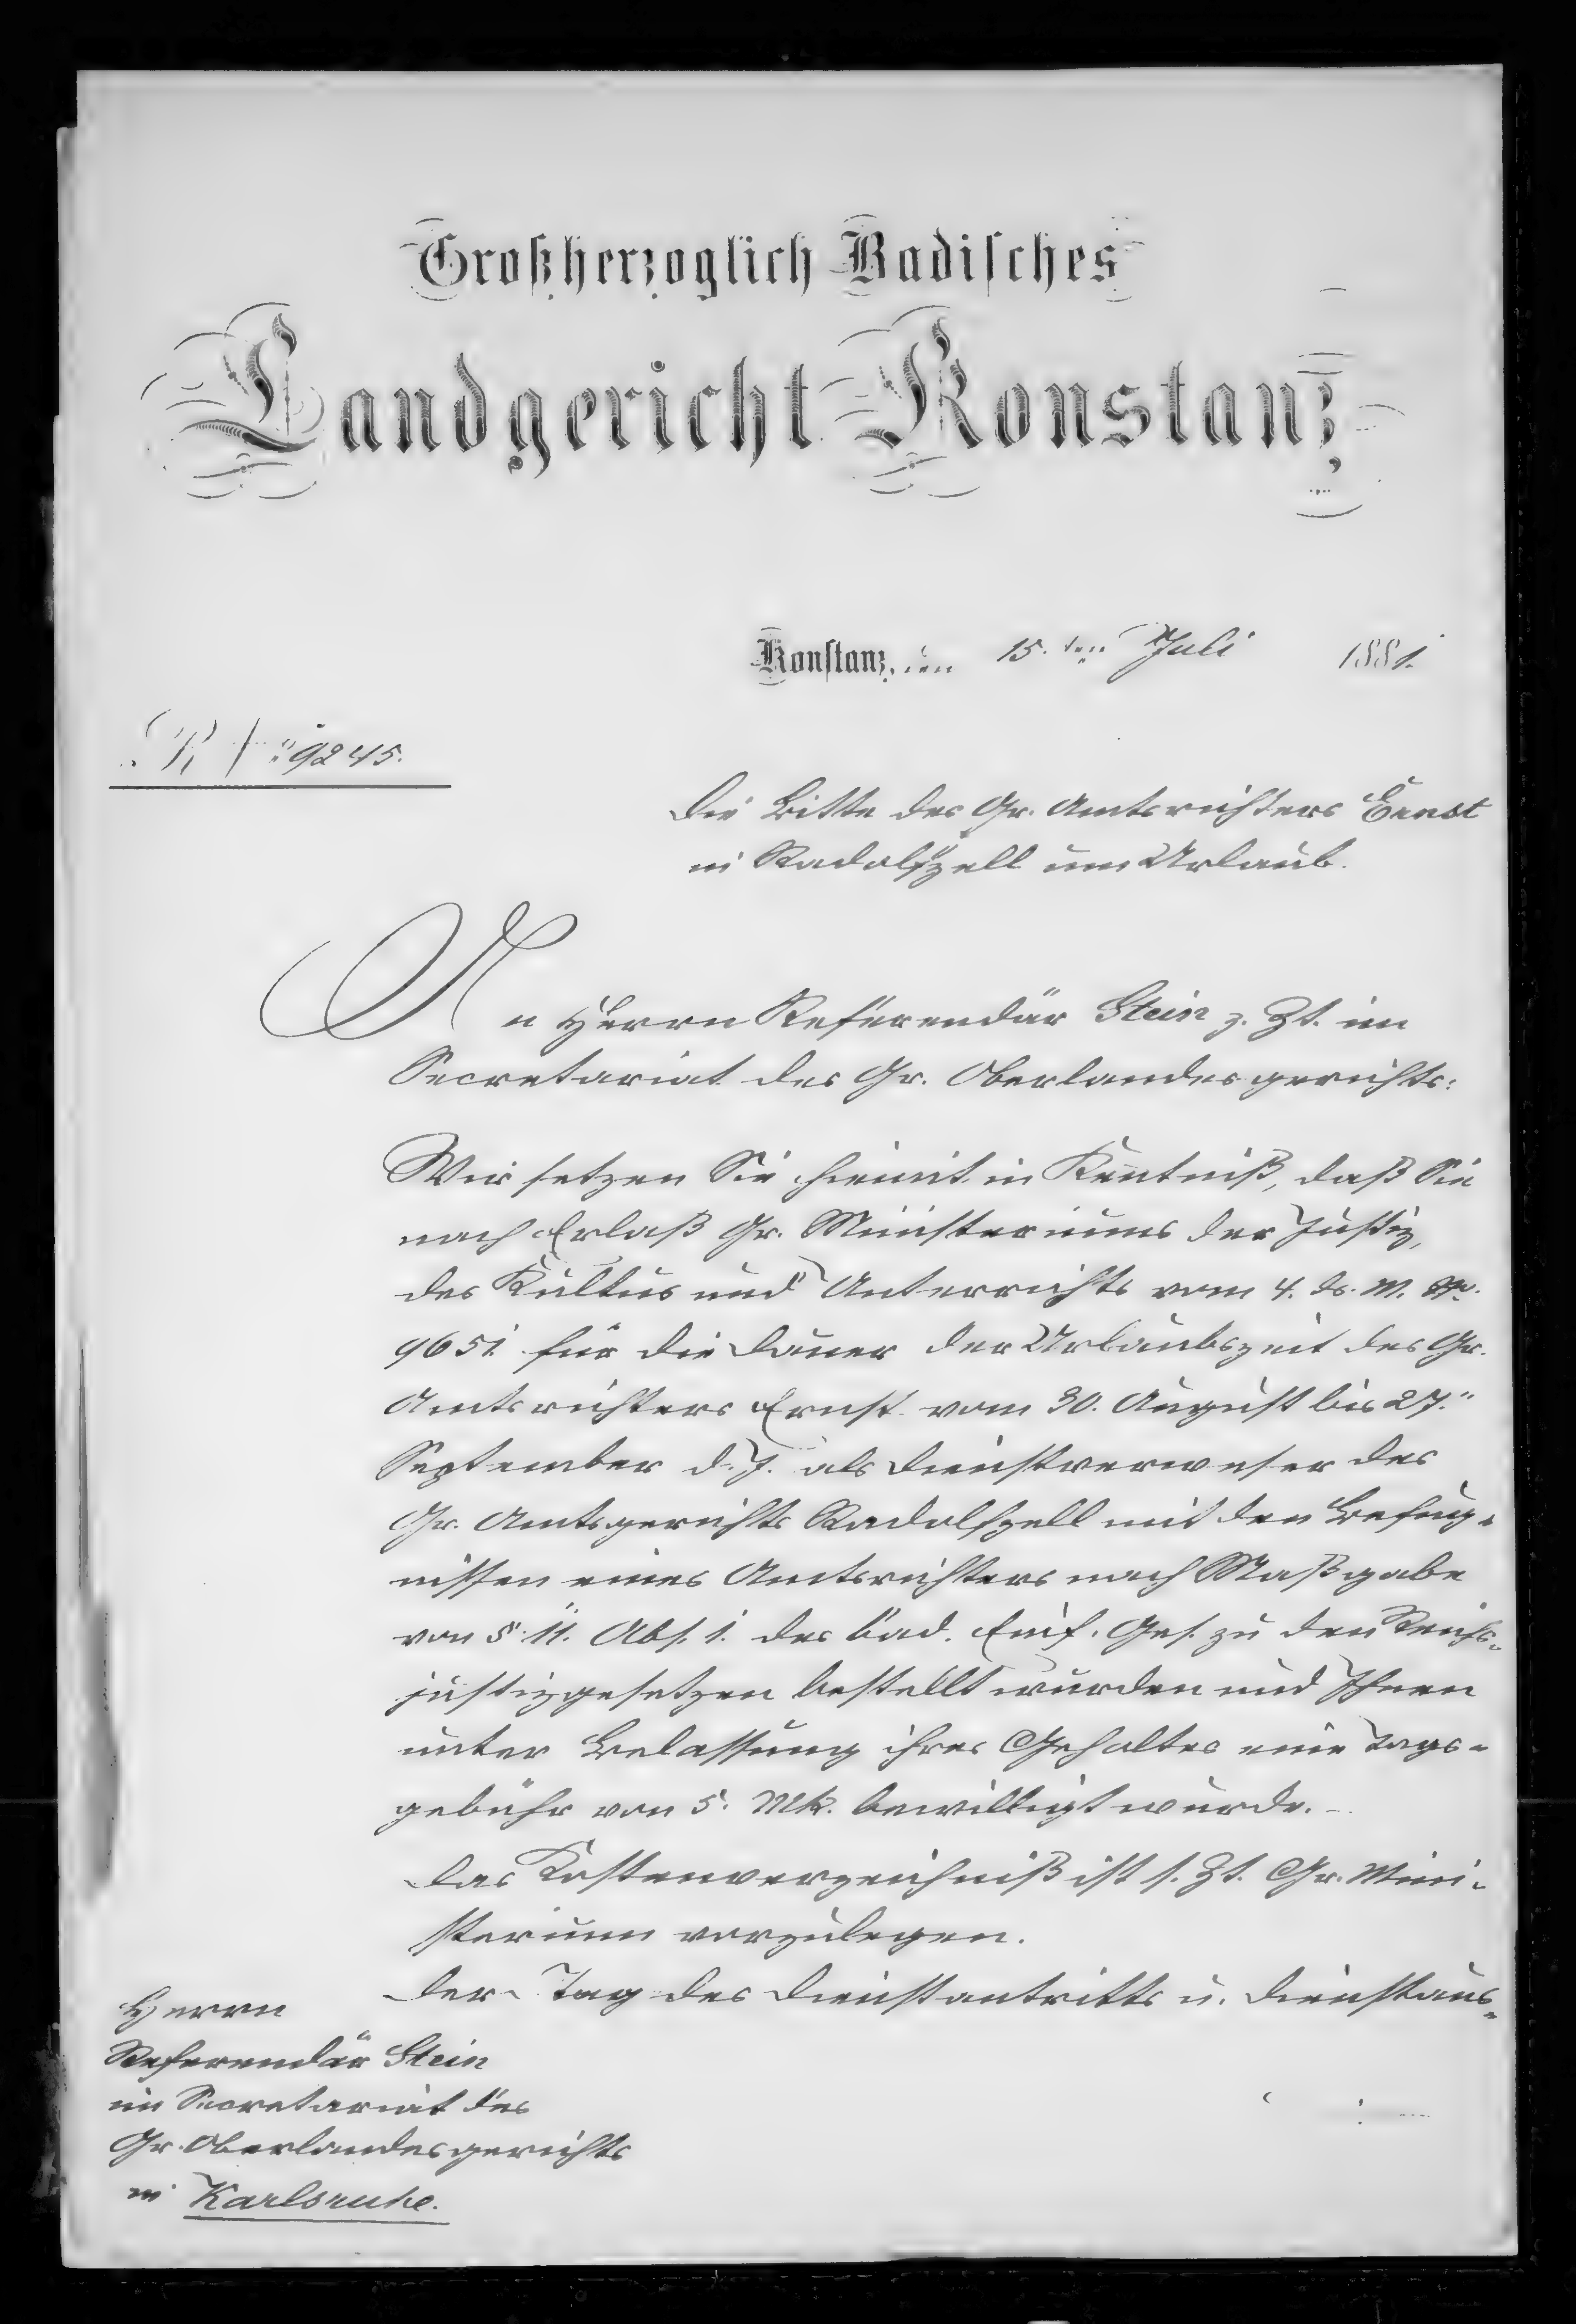 Großherzoglich Badisches
Landgericht Konstanz
Konstanz, den 15. ten Juli 1881.
No. 9245.
Die Bitte des Gr. Amtsrichters Ernst
in Radolfzell um Urlaub.
An Herrn Referendär Stein z. Zt. im
Secretariat des Gr. Oberlandesgerichts:
Wir setzen Sie hiemit in Kentniß, daß Sie
nach Erlaß Gr. Ministeriums der Justiz,
des Kultus und Unterrichts vom 4. ds. M. No.
9651. für die Dauer der Urlaubszeit des Gr.
Amtsrichters Ernst vom 30. August bis 27.
September d. J. als Dienstverweser des
Gr. Amtsgerichts Radolfzell mit den Befug-
nissen eines Amtsrichters nach Maßgabe
von § 11. Abs. 1. des bad. Einf. Ges. zu den Reichs-
justizgesetzen bestellt wurden und Ihnen
unter Belassung ihres Gehaltes eine Tags-
gebühr von 5. Mk. bewilligt wurde. -
Das Kostenverzeichniß ist s. Zt. Gr. Mini-
sterium vorzulegen.
Der Tag des Dienstantritts u. Dienstaus-
Herrn
Referendär Stein
im Secretariat des
Gr. Oberlandesgerichts
in Karlsruhe.